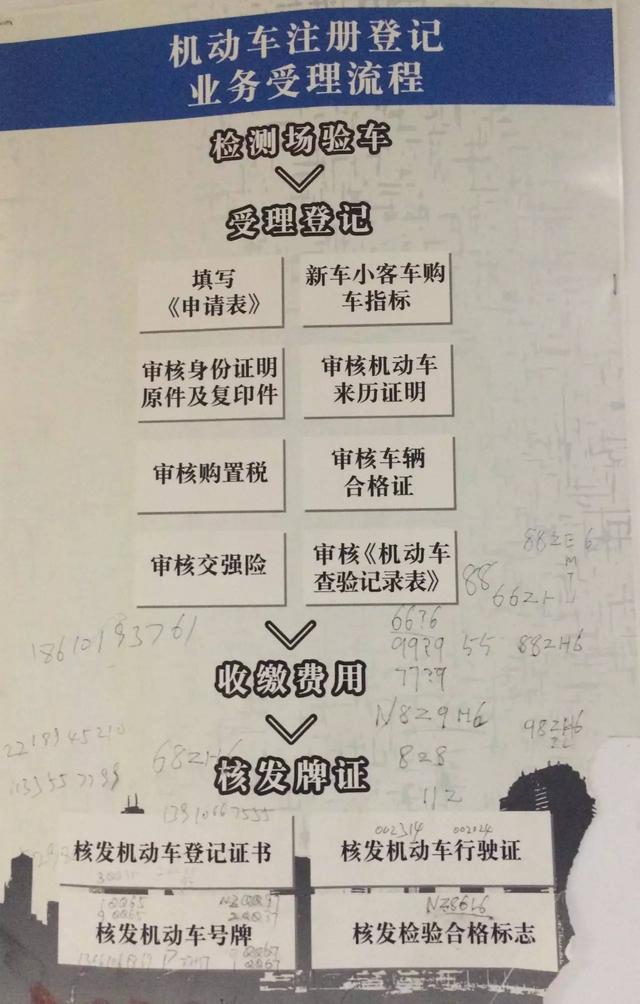 机动车注册登记
业务受理流程
检测场验车
受理登记
填写
《申请表》
新车小客车购
车指标
审核身份证明
原件及复印件
审核机动车
来历证明
审核购置税
审核车辆
合格证
审核交强险
审核《机动车
查验记录表》
88
66ZH
88ZH6
18610193761
66?6
99?9
55
77?9
收缴费用
N8Z9H6
98ZH6
68ZH6
828
112
核发牌证
002314
核发机动车登记证书
核发机动车行驶证
NZ86L6
核发机动车号牌
核发检验合格标志